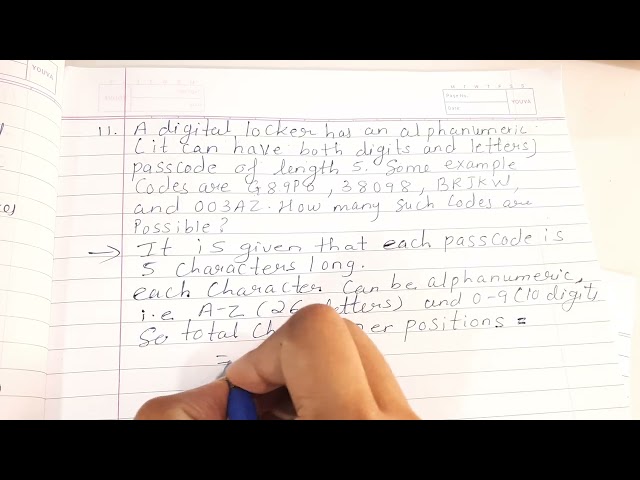 YOUVA
Page No.
Date
YOUVA
11. A digital locker has an alphanumeric
(it can have both digits and letters)
passcode of length 5. Some example
Codes are G89P0, 38098, BRJKW,
and 003AZ. How many such codes are
Possible?
→ It is given that each passcode is
5 characters long.
each character can be alphanumeric,
i.e A-Z (26 letters) and 0-9 (10 digits
So total per positions =
=